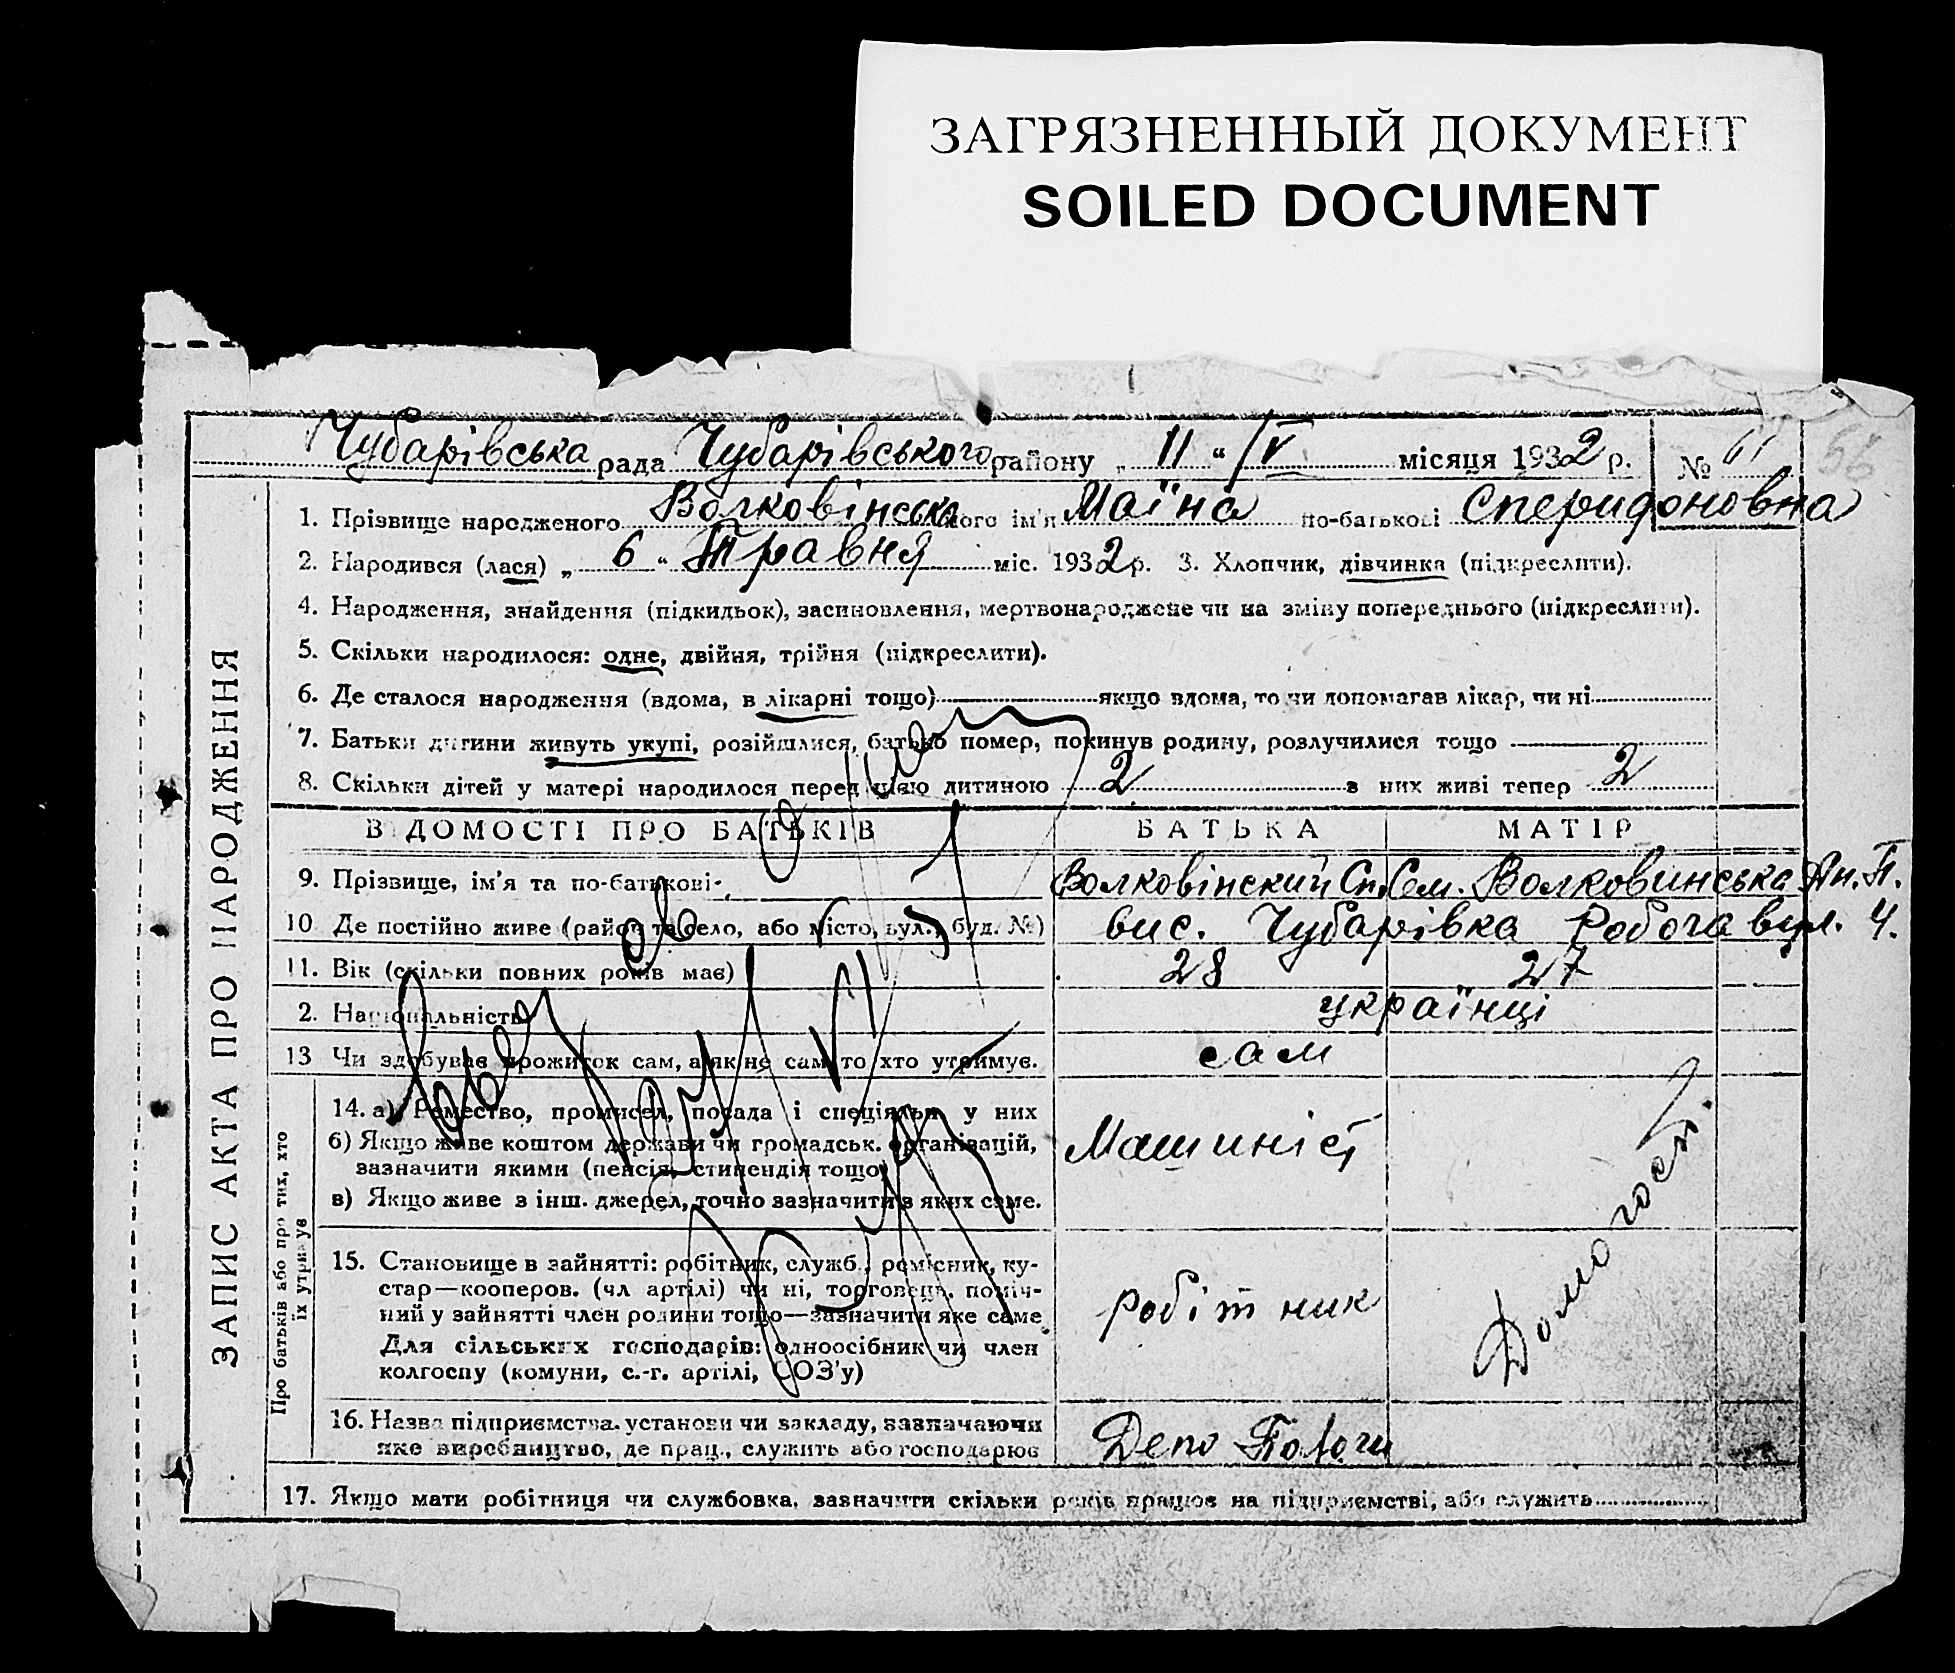 ЗАГРЯЗНЕННЫЙ ДОКУМЕНТ
SOILED DOCUMENT
56
Чубарівська рада Чубарівського району „ 11 “ IV місяця 1932 р. № 61
1. Прізвище народженого Волковінська його ім'я Маїна по-батькові Сперидоновна
2. Народився (лася) „ 6 “ Травня міс. 1932 р. 3. Хлопчик, дівчинка (підкреслити).
4. Народження, знайдення (підкидьок), засиновлення, мертвонароджене чи на зміну попереднього (підкреслити).
5. Скільки народилося: одне, двійня, трійня (підкреслити).
6. Де сталося народження (вдома, в лікарні тощо) якщо вдома, то чи допомагав лікар, чи ні
7. Батьки дитини живуть укупі, розійшлися, батько помер, покинув родину, розлучилися тощо
8. Скільки дітей у матері народилося перед цією дитиною 2 з них живі тепер 2
ВІДОМОСТІ ПРО БАТЬКІВ БАТЬКА МАТІР
9. Прізвище, ім'я та по-батькові Волковінский Сп. Сем. Волковинська Ан. П.
10 Де постійно живе (район та село, або місто, вул., буд. №) вис. Чубарівка Робоча вул. 4.
11. Вік (скільки повних років має) 28 27
2. Національність українці
13 Чи здобуває прожиток сам, а як не сам, то хто утримує. сам
ЗАПИС АКТА ПРО НАРОДЖЕННЯ
Про батьків або про тих, хто
їх утримує
14. а) Ремество, промисел, посада і спеціяльн. у них
б) Якщо живе коштом держави чи громадськ. організацій,
зазначити якими (пенсія, стипендія тощо)
в) Якщо живе з інш. джерел, точно зазначити з яких саме.
Машиніст
Домогосп.
15. Становище в зайнятті: робітник, службов., ремісник, ку-
стар—кооперов. (чл артілі) чи ні, торговець, поміч-
ний у зайнятті член родини тощо—зазначити яке саме
Для сільських господарів: одноосібник чи член
колгоспу (комуни, с.-г. артілі, СОЗ'у)
робітник
16. Назва підприємства, установи чи закладу, зазначаючи
яке виробництво, де прац., служить або господарює
Депо Пологи
17. Якщо мати робітниця чи службовка, зазначити скільки років працює на підприємстві, або служить